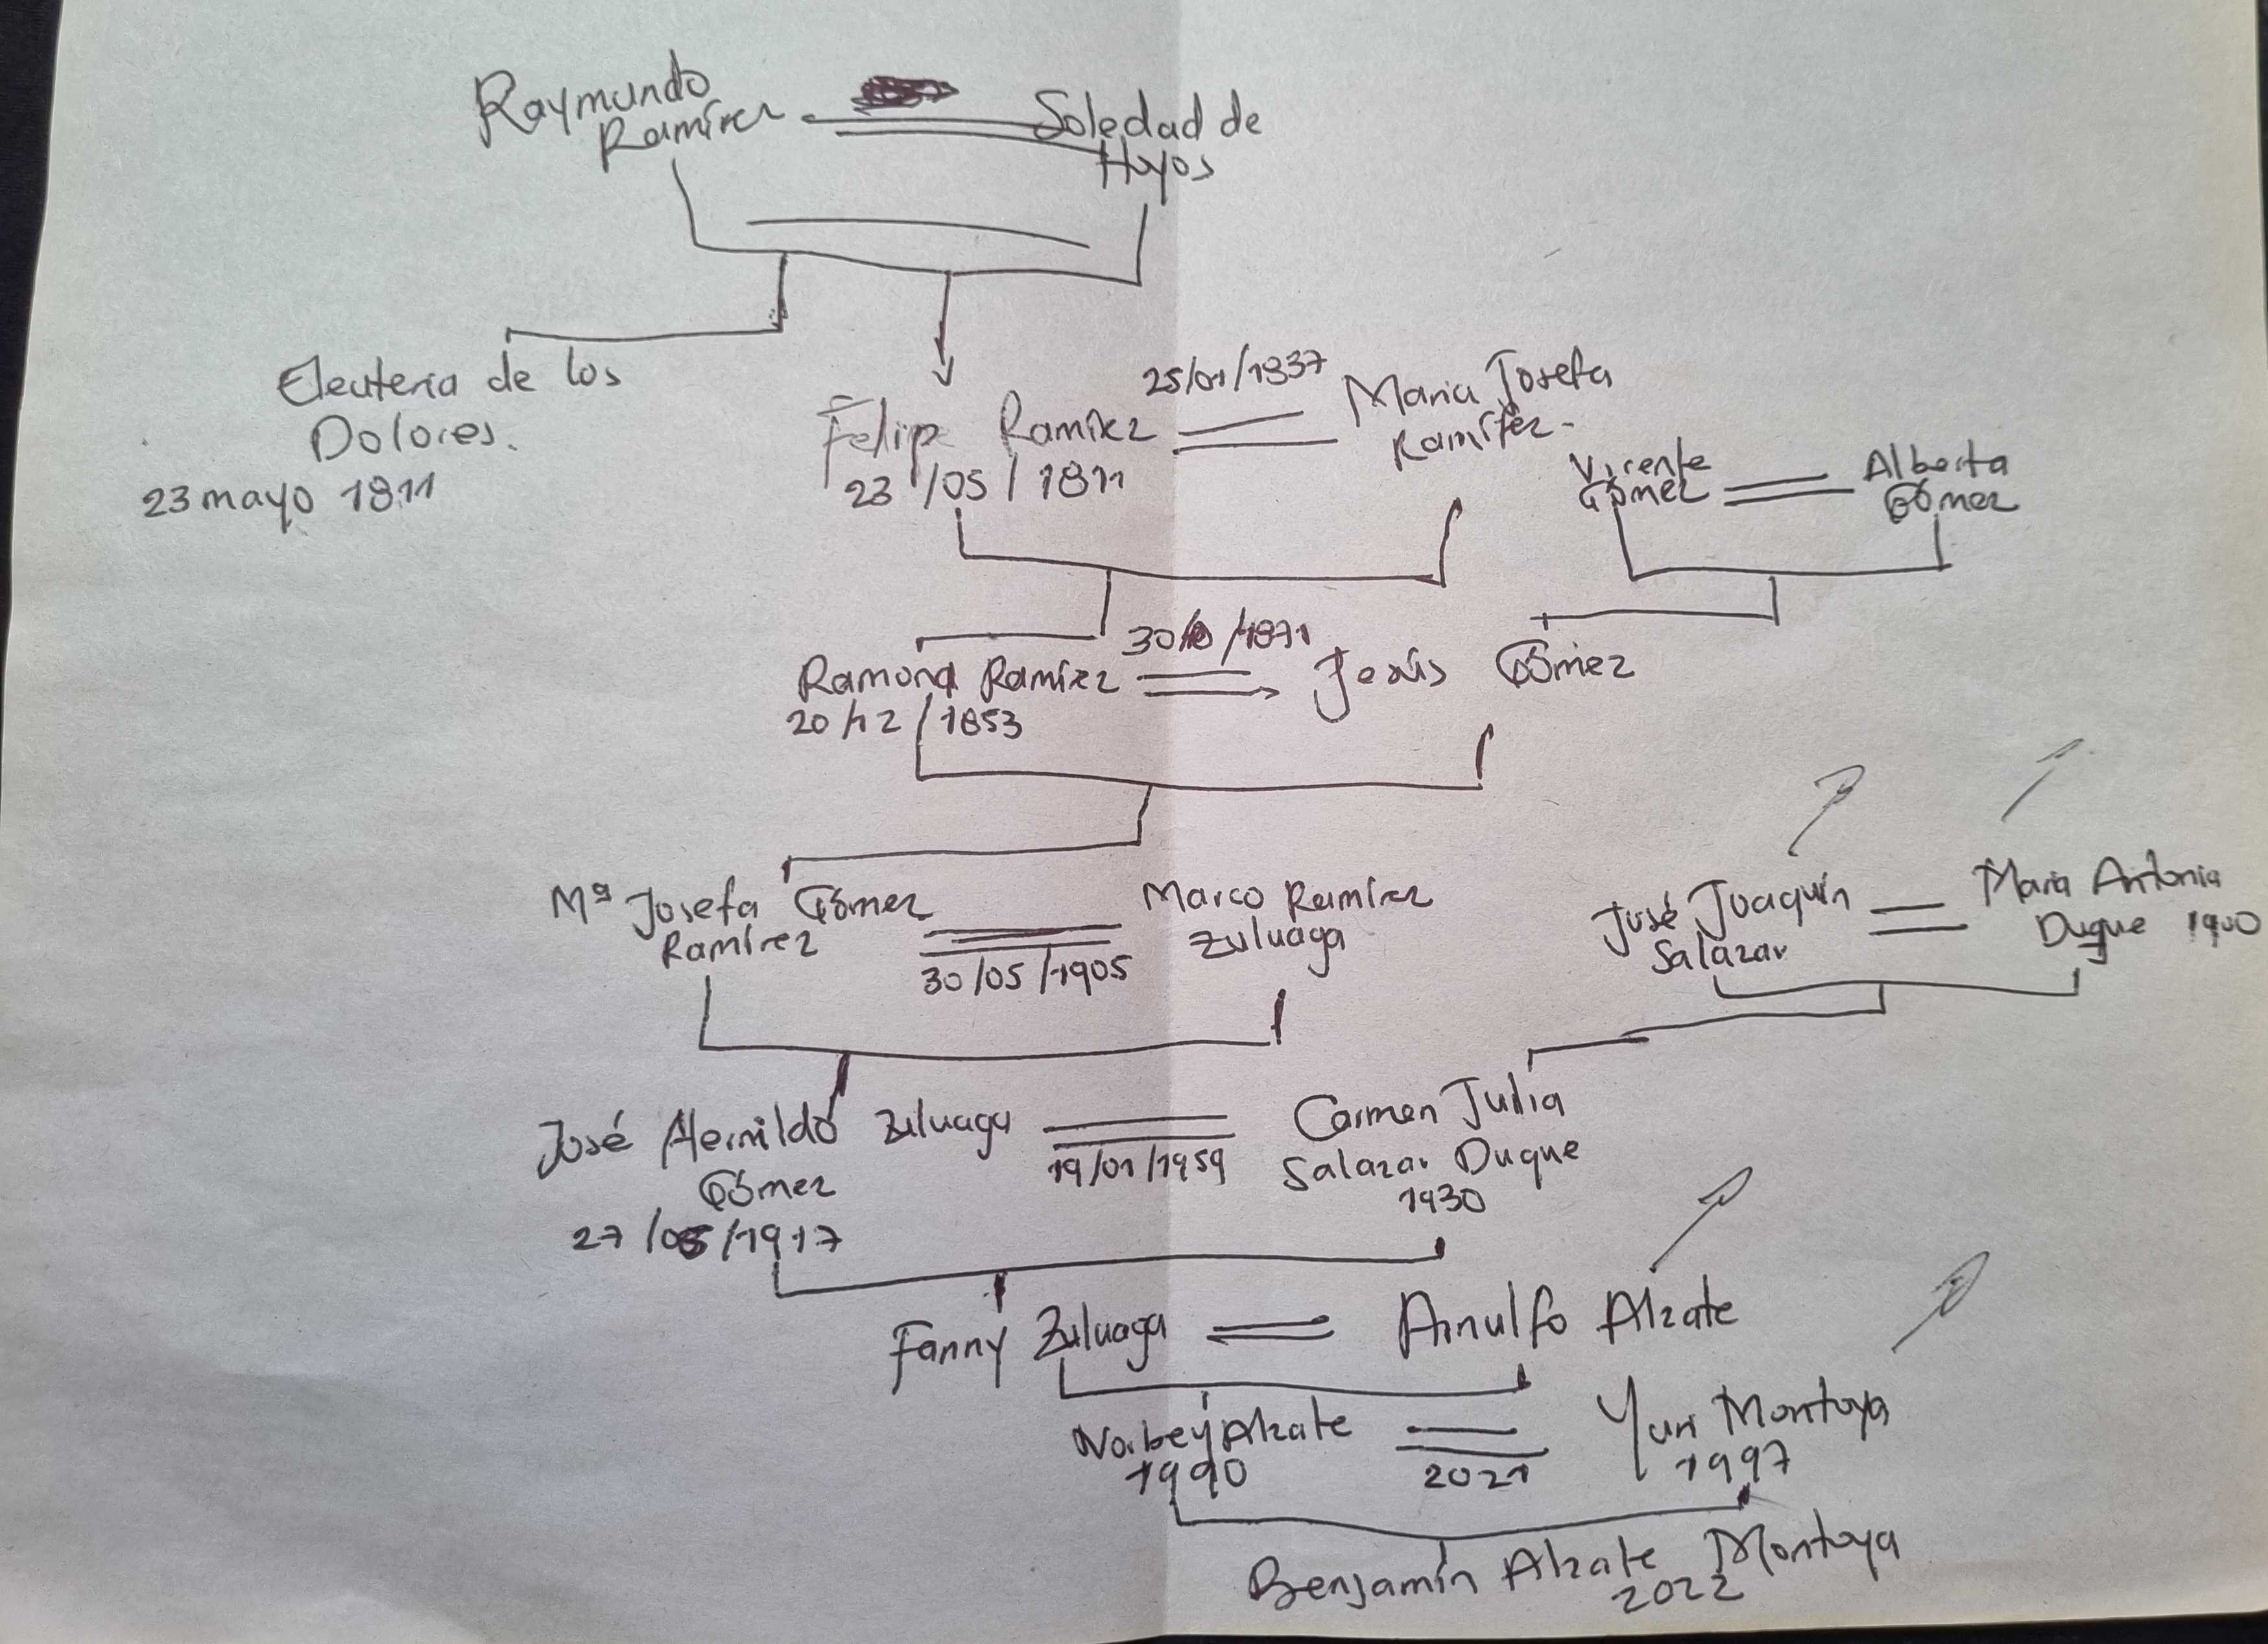 Raymundo
Ramírez
Soledad de
Hoyos
Eleuteria de los
Dolores.
23 mayo 1811
Felipe Ramírez
23/05/1811
25/01/1837
Maria Josefa
Ramírez-
Vicente
Gómez
Alberta
Gómez
Ramona Ramírez
20/12/1853
/1871
Jesús Gómez
Mª Josefa Gómez
Ramírez
30/05/1905
Marco Ramírez
Zuluaga
José Joaquín
Salazar
Maria Antonia
Duque 1900
José Hernildo Zuluaga
Gómez
/1917
19/01/1959
Carmen Julia
Salazar Duque
1930
Fanny Zuluaga
Arnulfo Alzate
Norbey Alzate
1990
2021
Yuri Montoya
1997
Benjamín Alzate Montoya
2022